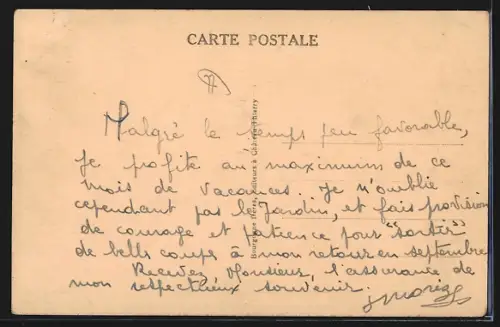 CARTE POSTALE
Malgré le temps peu favorable,
je profite au maximum de ce
mois de vacances. Je n'oublie
cependant pas le Jardin, et fais provision
de courage et patience pour "sortir"
de bells coups à mon retour en septembre
Recevez Monsieur, l'assurance de
mon respectueux souvenir.
Bourgogne Frères, Éditeurs à Château-Thierry